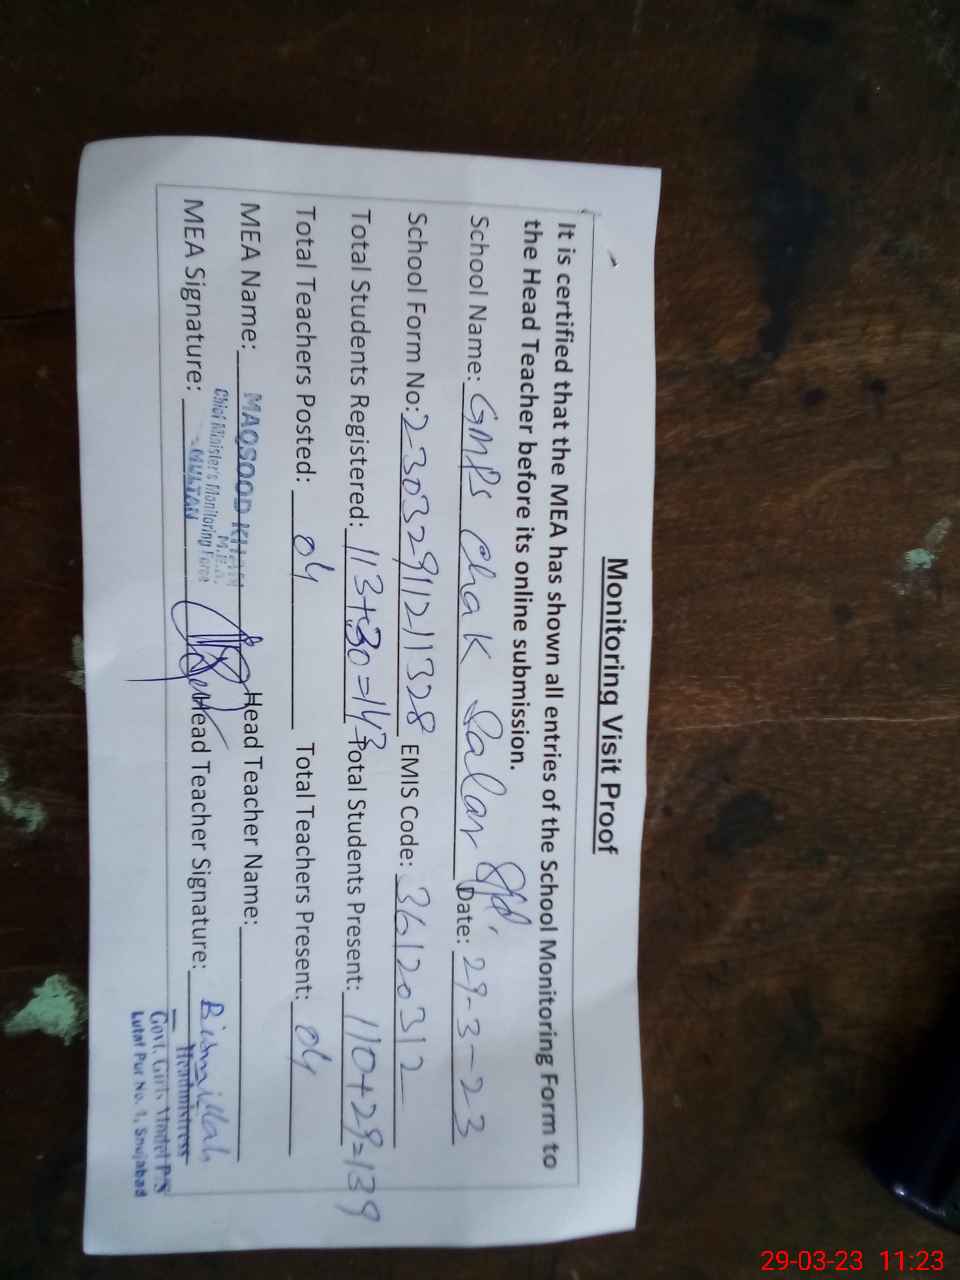 Monitoring Visit Proof
It is certified that the MEA has shown all entries of the School Monitoring Form to
the Head Teacher before its online submission.
School Name: GMPS Chak Salar Date: 29-3-23
School Form No: 23032911211328 EMIS Code: 36120312
Total Students Registered: 113+30=143 Total Students Present: 110+29=139
Total Teachers Posted: 04 Total Teachers Present: 04
MEA Name: MAQSOOD KHAN Head Teacher Name:
M.E.A.
Chief Minister's Monitoring Force
MULTAN
MEA Signature: Head Teacher Signature: Bismillah
Headmistress
Govt. Girls Model P/S
Lutaf Pur No. 1, Shujabad
29-03-23 11:23